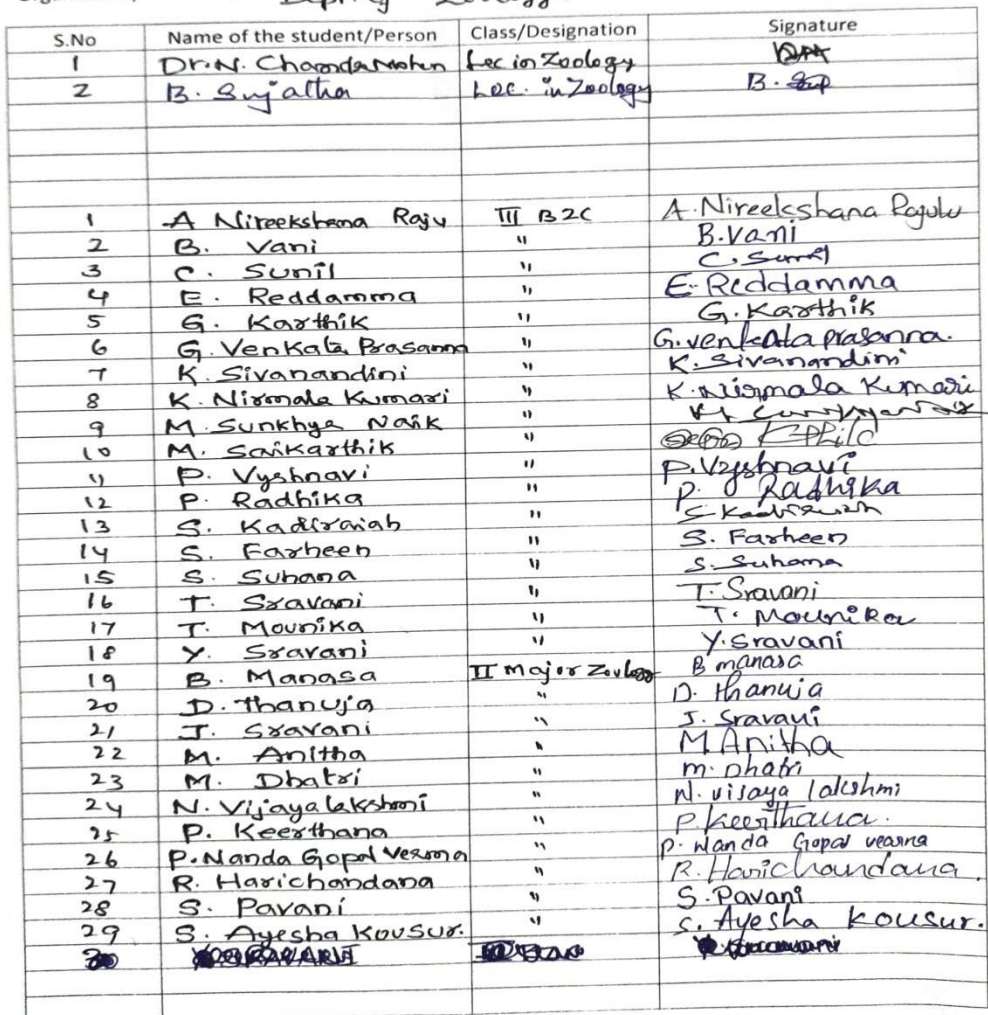 Zoology
S.No Name of the student/Person Class/Designation Signature
1 Dr.N. Lec in Zoology
2 B. Sujatha Lec. in Zoology B.
1 A Nireekshana Raju III BZC A. Nireekshana Rajulu
2 B. Vani " B.Vani
3 C. Sunil " C. Sunil
4 E. Reddamma " E. Reddamma
5 G. Karthik " G. Karthik
6 G. Venkata Prasanna " G. venkata prasanna.
7 K. Sivanandini " K. Sivanandini
8 K. Nirmala Kumari " K. Nirmala Kumari
9 M. Sunkhya Naik "
10 M. Saikarthik "
11 P. Vyshnavi " P. Vyshnavi
12 P. Radhika " P. Radhika
13 S. Kadiraiah " S. Kadiraiah
14 S. Farheen " S. Farheen
15 S. Suhana " S. Suhana
16 T. Sravani " T. Sravani
17 T. Mounika " T. Mounika
18 Y. Sravani " Y. Sravani
19 B. Manasa II Major Zoology B manasa
20 D. thanuja " D. thanuja
21 J. Sravani " J. Sravani
22 M. Anitha " M Anitha
23 M. Dhatri " m. Dhatri
24 N. Vijayalakshmi " N. vijaya lakshmi
25 P. Keerthana " P. Keerthana.
26 P. Nanda Gopal Verma " P. Nanda Gopal
27 R. Harichandana " R. Harichandana.
28 S. Pavani " S. Pavani
29 S. Ayesha Kousur. " S. Ayesha Kousur.
30